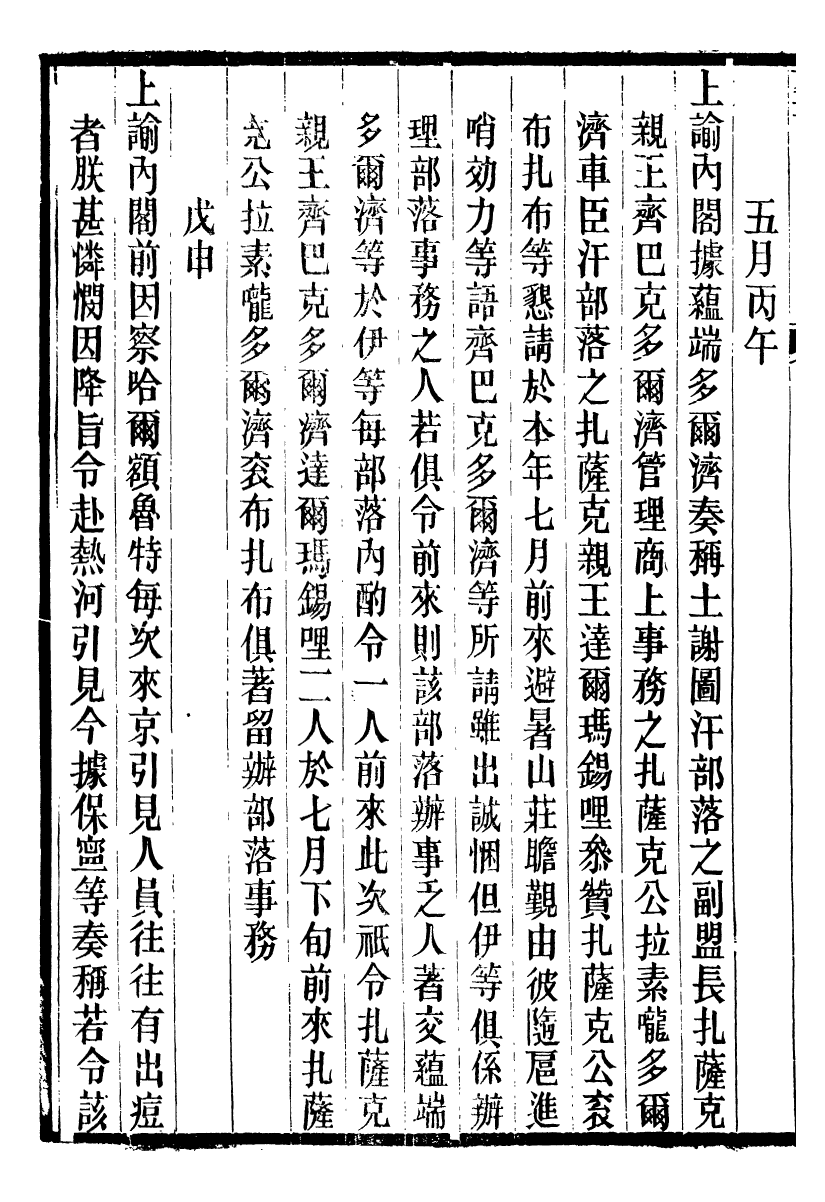 五月丙午
上諭內閣據蘊端多爾濟奏稱土謝圖汗部落之副盟長扎薩克
親王齊巴克多爾濟管理商上事務之扎薩克公拉素嚨多爾
濟車臣汗部落之扎薩克親王達爾瑪錫哩叅贊扎薩克公袞
布扎布等懇請於本年七月前來避暑山莊瞻覲由彼隨扈進
哨効力等語齊巴克多爾濟等所請雖出誠悃但伊等俱係辦
理部落事務之人若俱令前來則該部落辦事乏人著交蘊端
多爾濟等於伊等每部落內酌令一人前來此次祇令扎薩克
親王齊巴克多爾濟達爾瑪錫哩二人於七月下旬前來扎薩
克公拉素嚨多爾濟袞布扎布俱著留辦部落事務
戊申
上諭內閣前因察哈爾額魯特每次來京引見人員往往有出痘
者朕甚憐憫因降旨令赴熱河引見今據保寍等奏稱若令該